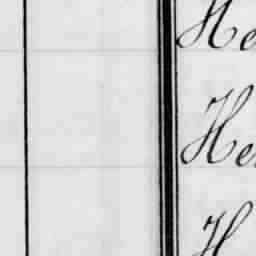 He
He
H